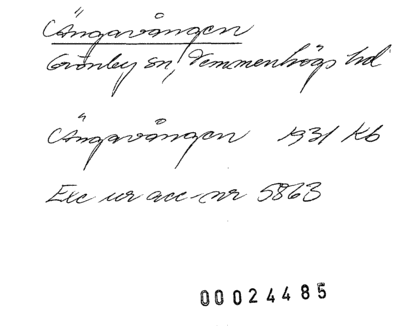 Ängavången
Grönby sn, Vemmenhögs hd
Ängavången 1931 Kb
Exc ur acc-nr 5863
00024485